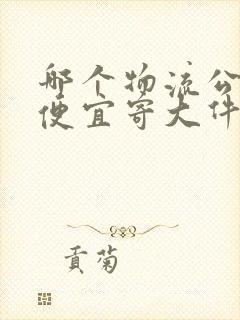 哪个物流公
便宜寄大件
贡菊